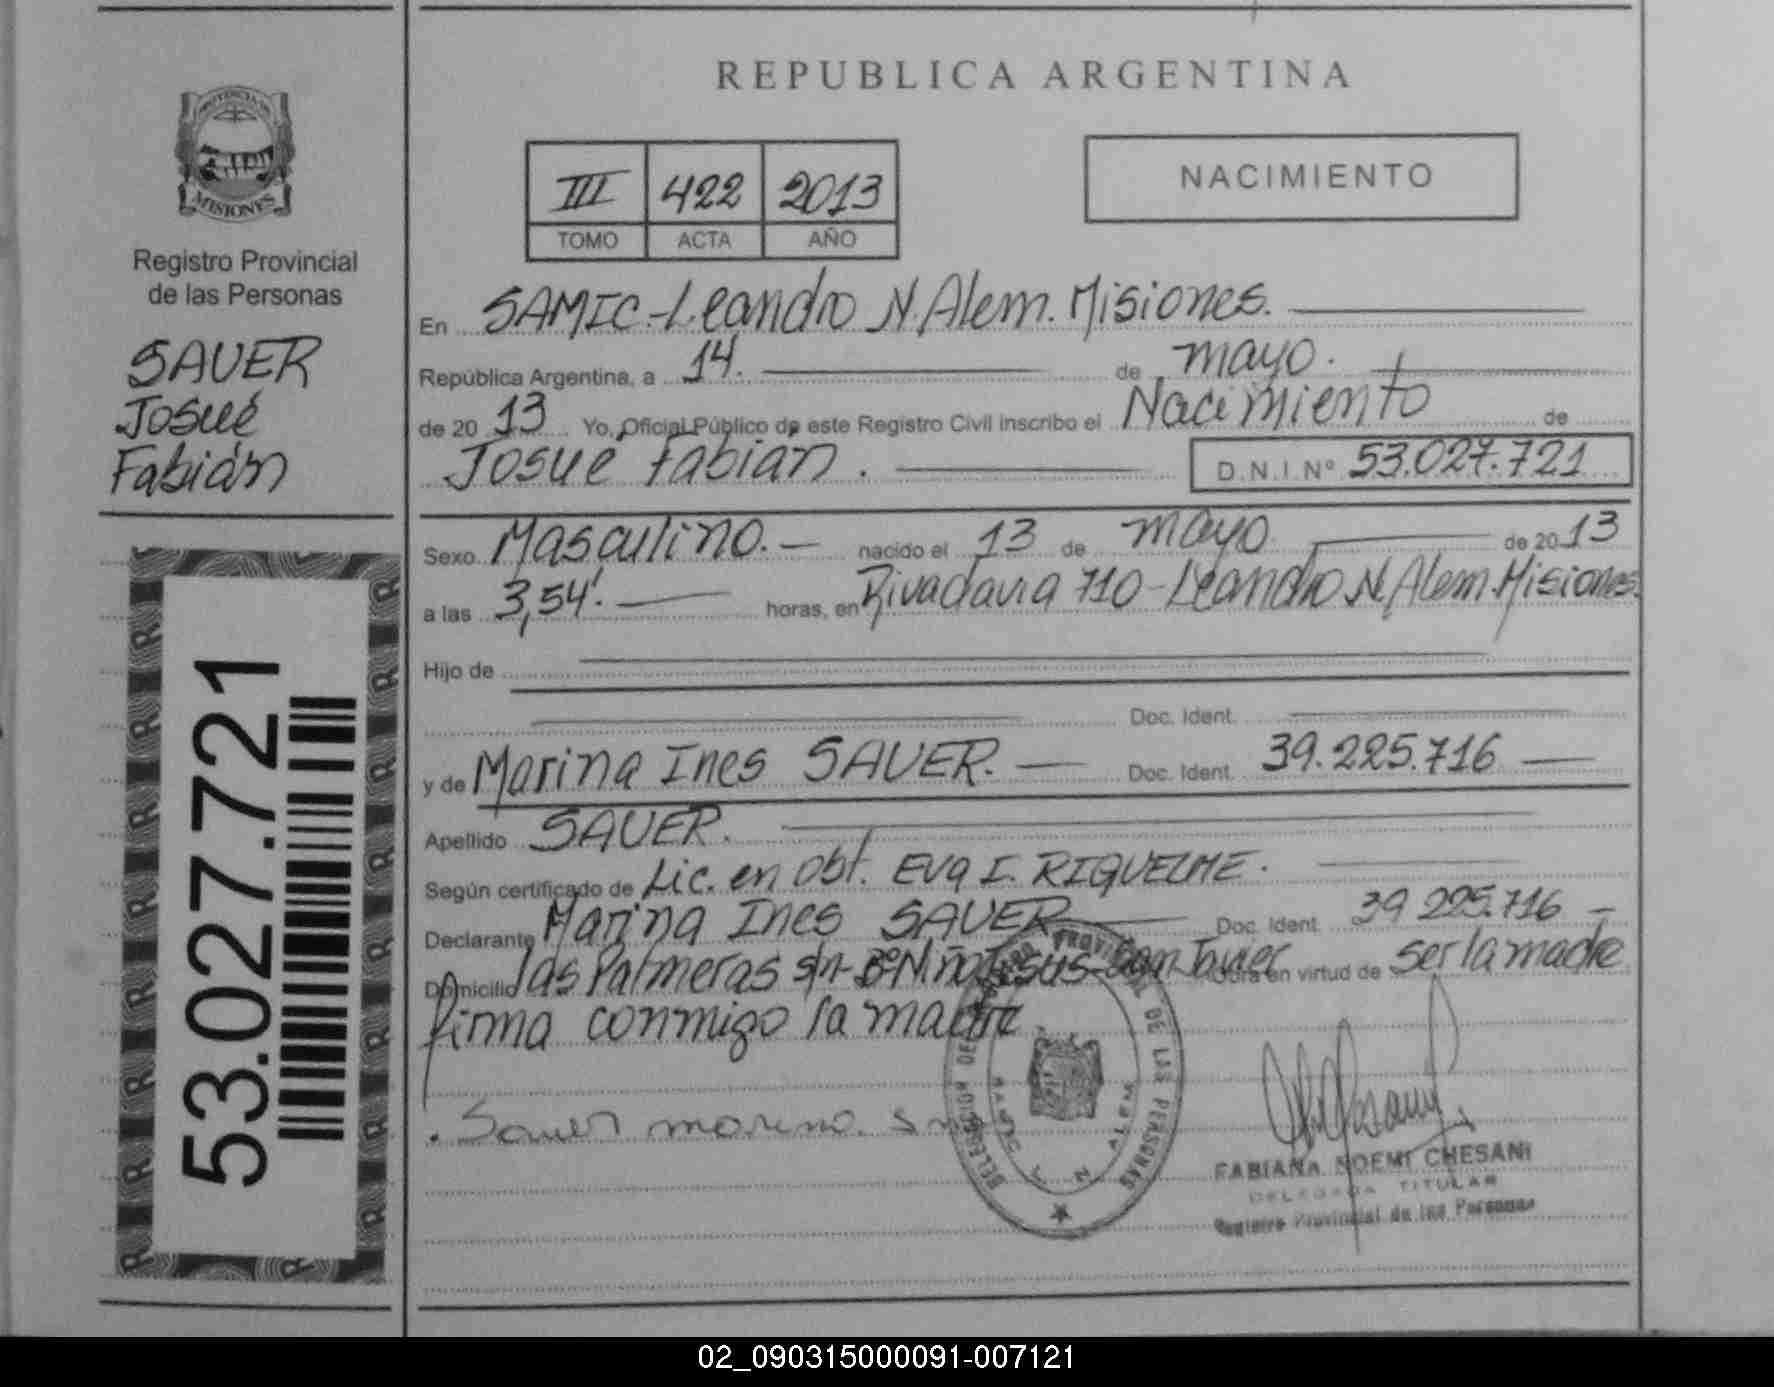 PROVINCIA DE
MISIONES
Registro Provincial
de las Personas
SAUER
Josué
Fabián
53.027.721
REPUBLICA ARGENTINA
III 422 2013
TOMO ACTA AÑO
NACIMIENTO
En SAMIC-Leandro N. Alem. Misiones.
República Argentina, a 14. de mayo.
de 2013 Yo, Oficial Público de este Registro Civil inscribo el Nacimiento de
Josué Fabián. D.N.I.Nº 53.027.721
Sexo Masculino.- nacido el 13 de mayo de 2013
a las 3,54'. horas, en Rivadavia 710-Leandro N. Alem. Misiones.
Hijo de
Doc. Ident.
y de Marina Ines SAUER. Doc. Ident. 39.225.716
Apellido SAUER.
Según certificado de Lic. en Obt. Eva I. RIQUELME.
Declarante Marina Ines SAUER Doc. Ident. 39 225.716
Domicilio las Palmeras s/n-Bº Niño Jesus-San Javier Obra en virtud de ser la madre
firma conmigo la madre
Sauer marina
DELEGACION DEL REGISTRO PROVINCIAL DE LAS PERSONAS
L N ALEM
FABIANA NOEMI CHESANI
DELEGADA TITULAR
Registro Provincial de las Personas
02_090315000091-007121